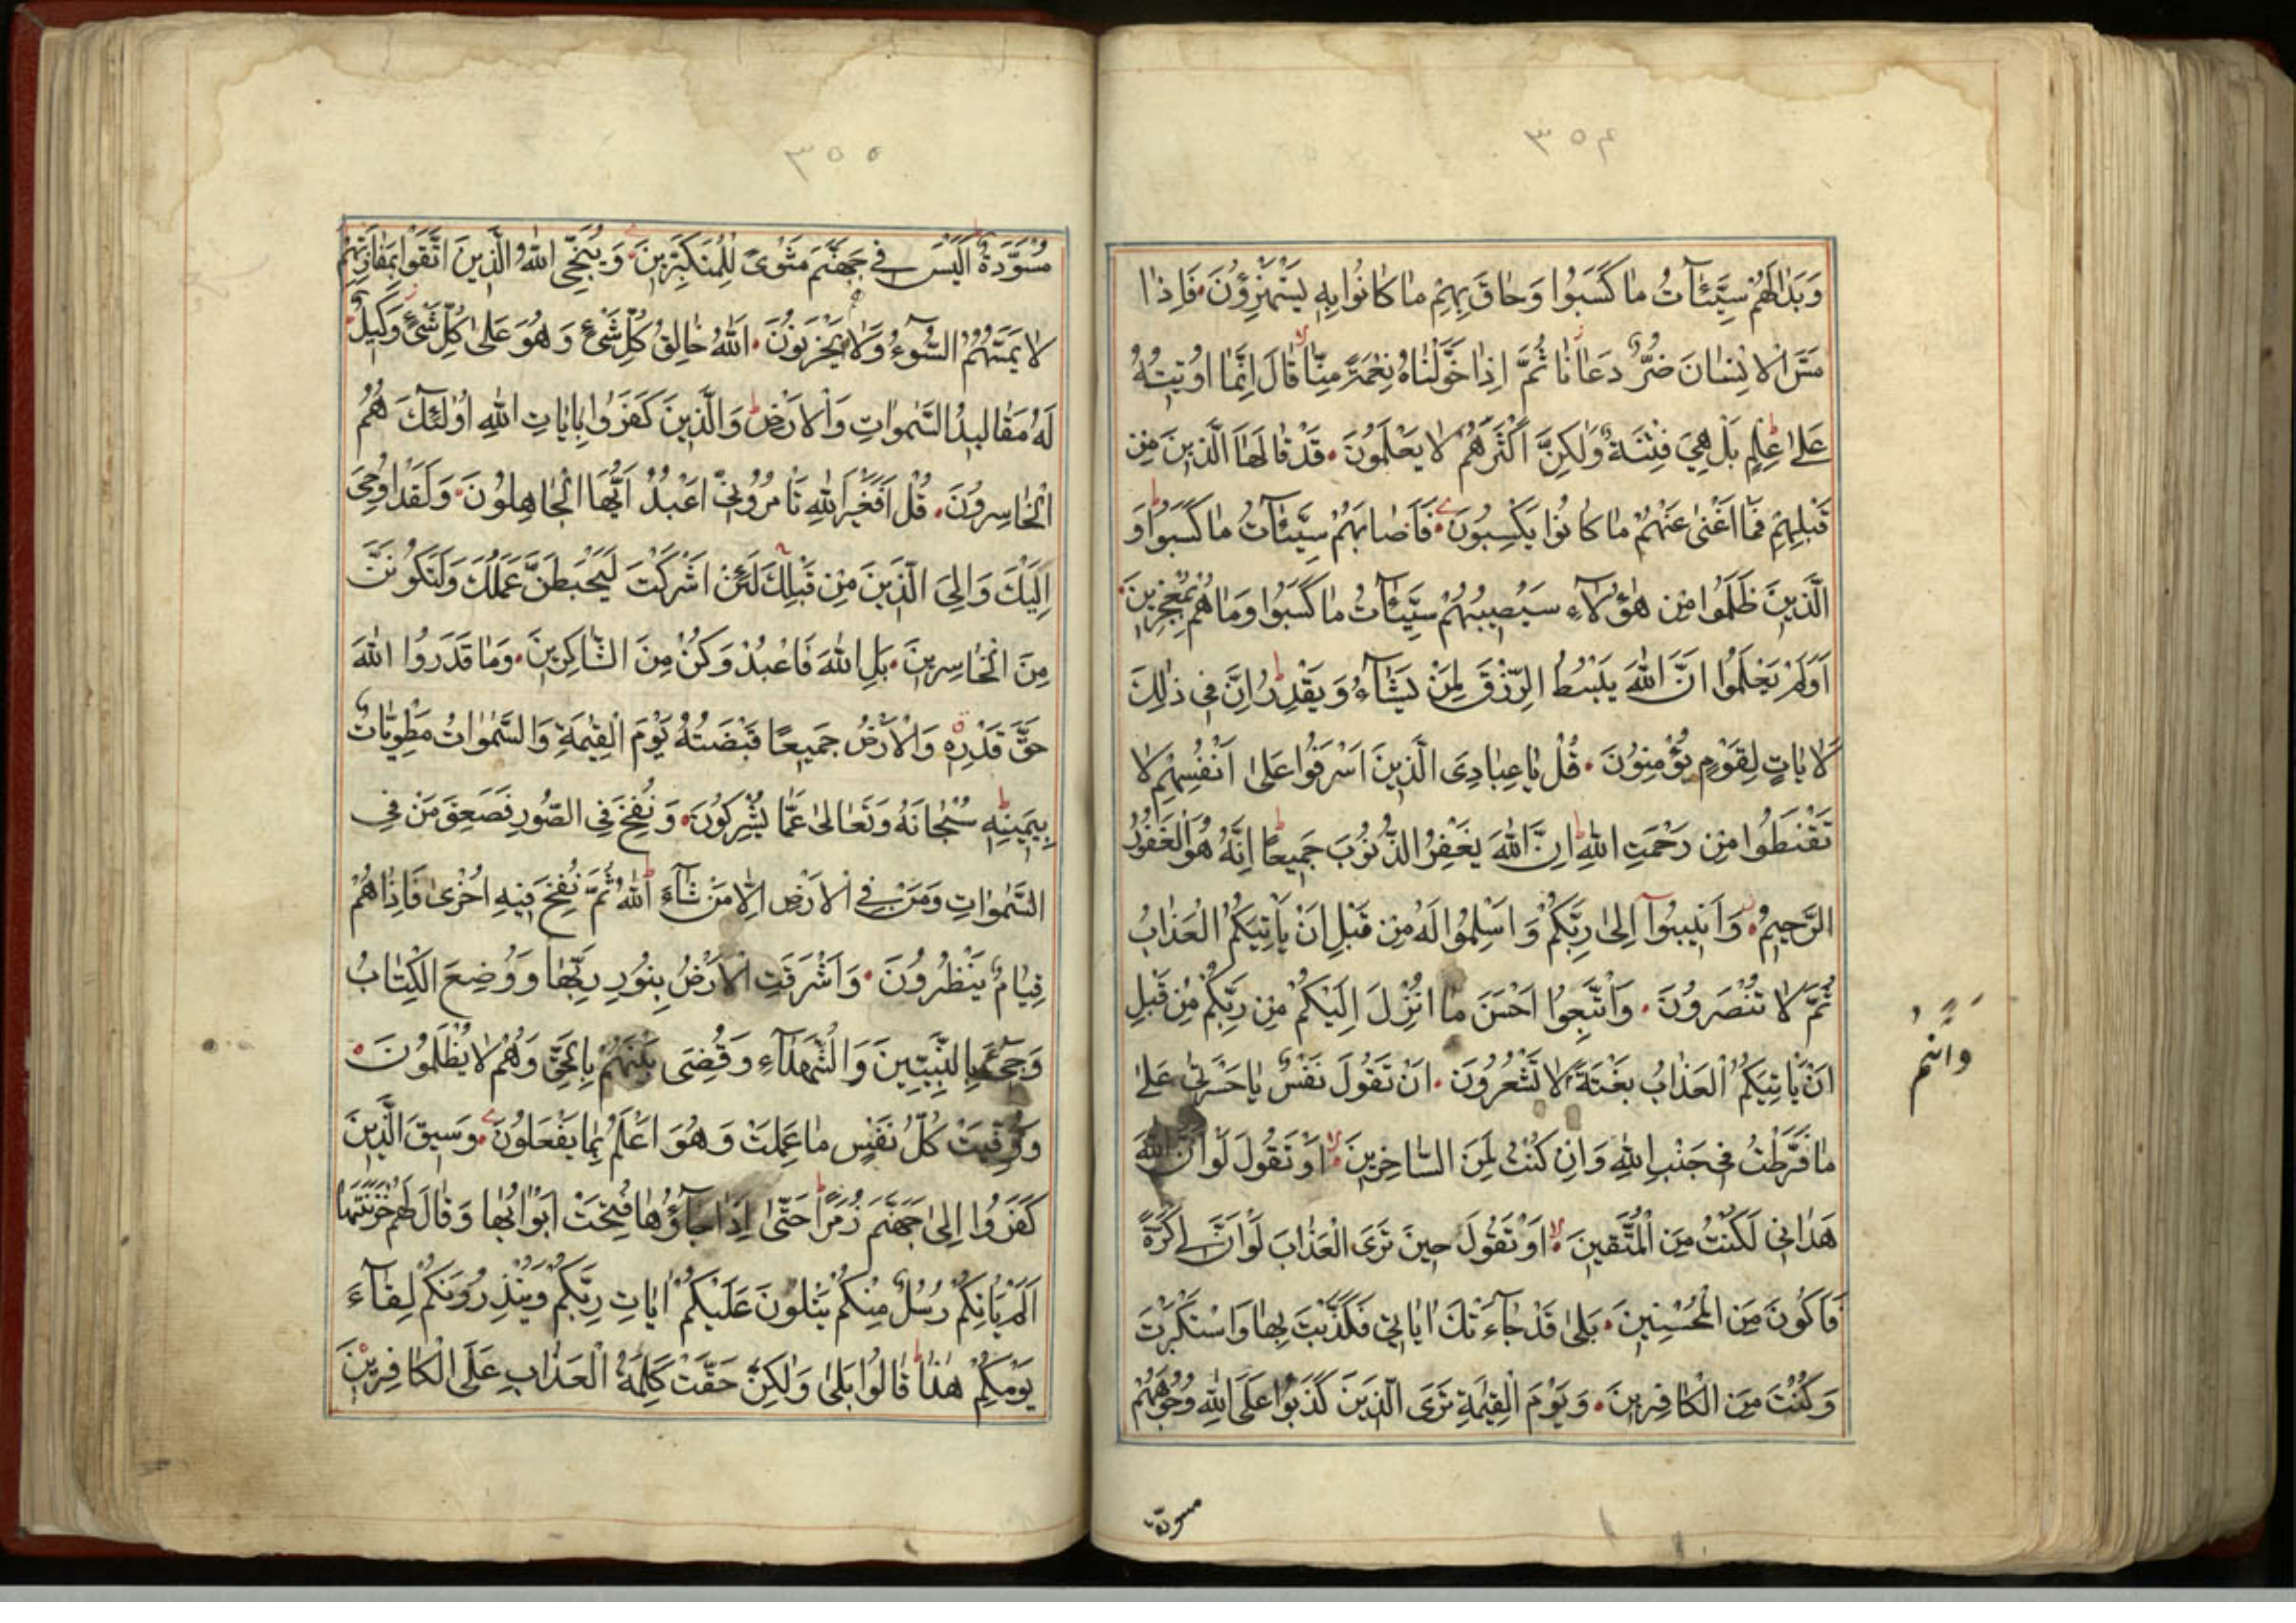 ٣٥٤
وَبَدَا لَهُمْ سَيِّئَاتُ مَا كَسَبُوا وَحَاقَ بِهِمْ مَا كَانُوا بِهِ يَسْتَهْزِؤُنَ فَاِذَا
مَسَّ الْاِنْسَانَ ضُرٌّ دَعَانَا ثُمَّ اِذَا خَوَّلْنَاهُ نِعْمَةً مِنَّا قَالَ اِنَّمَا اُوتِيتُهُ
عَلَىٰ عِلْمٍ بَلْ هِيَ فِتْنَةٌ وَلٰكِنَّ اَكْثَرَهُمْ لَا يَعْلَمُونَ قَدْ قَالَهَا الَّذِينَ مِنْ
قَبْلِهِمْ فَمَا اَغْنَىٰ عَنْهُمْ مَا كَانُوا يَكْسِبُونَ فَاَصَابَهُمْ سَيِّئَاتُ مَا كَسَبُوا وَ
الَّذِينَ ظَلَمُوا مِنْ هٰؤُلَآءِ سَيُصِيبُهُمْ سَيِّئَاتُ مَا كَسَبُوا وَمَا هُمْ بِمُعْجِزِينَ
اَوَلَمْ يَعْلَمُوا اَنَّ اللّٰهَ يَبْسُطُ الرِّزْقَ لِمَنْ يَشَآءُ وَيَقْدِرُ اِنَّ فِي ذٰلِكَ
لَاٰيَاتٍ لِقَوْمٍ يُؤْمِنُونَ قُلْ يَا عِبَادِيَ الَّذِينَ اَسْرَفُوا عَلَىٰ اَنْفُسِهِمْ لَا
تَقْنَطُوا مِنْ رَحْمَتِ اللّٰهِ اِنَّ اللّٰهَ يَغْفِرُ الذُّنُوبَ جَمِيعًا اِنَّهُ هُوَ الْغَفُورُ
الرَّحِيمُ وَاَنِيبُوآ اِلَىٰ رَبِّكُمْ وَاَسْلِمُوا لَهُ مِنْ قَبْلِ اَنْ يَاْتِيَكُمُ الْعَذَابُ
ثُمَّ لَا تُنْصَرُونَ وَاتَّبِعُوا اَحْسَنَ مَا اُنْزِلَ اِلَيْكُمْ مِنْ رَبِّكُمْ مِنْ قَبْلِ
اَنْ يَاْتِيَكُمُ الْعَذَابُ بَغْتَةً لَا تَشْعُرُونَ اَنْ تَقُولَ نَفْسٌ يَا حَسْرَتٰى عَلَىٰ
وَاَنْتُمْ
مَا فَرَّطْتُ فِي جَنْبِ اللّٰهِ وَاِنْ كُنْتُ لَمِنَ السَّاخِرِينَ اَوْ تَقُولَ لَوْ اَنَّ اللّٰهَ
هَدَانِي لَكُنْتُ مِنَ الْمُتَّقِينَ اَوْ تَقُولَ حِينَ تَرَى الْعَذَابَ لَوْ اَنَّ لِي كَرَّةً
فَاَكُونَ مِنَ الْمُحْسِنِينَ بَلَىٰ قَدْ جَآءَتْكَ اٰيَاتِي فَكَذَّبْتَ بِهَا وَاسْتَكْبَرْتَ
وَكُنْتَ مِنَ الْكَافِرِينَ وَيَوْمَ الْقِيٰمَةِ تَرَى الَّذِينَ كَذَبُوا عَلَى اللّٰهِ وُجُوهُهُمْ
مسودّة
٣٥٥
مُسْوَدَّةٌ اَلَيْسَ فِي جَهَنَّمَ مَثْوًى لِلْمُتَكَبِّرِينَ وَيُنَجِّي اللّٰهُ الَّذِينَ اتَّقَوْا بِمَفَازَتِهِمْ
لَا يَمَسُّهُمُ السُّوءُ وَلَا هُمْ يَحْزَنُونَ اَللّٰهُ خَالِقُ كُلِّ شَيْءٍ وَهُوَ عَلَىٰ كُلِّ شَيْءٍ وَكِيلٌ
لَهُ مَقَالِيدُ السَّمٰوَاتِ وَالْاَرْضِ وَالَّذِينَ كَفَرُوا بِاٰيَاتِ اللّٰهِ اُولٰئِكَ هُمُ
الْخَاسِرُونَ قُلْ اَفَغَيْرَ اللّٰهِ تَاْمُرُونِّي اَعْبُدُ اَيُّهَا الْجَاهِلُونَ وَلَقَدْ اُوحِيَ
اِلَيْكَ وَاِلَى الَّذِينَ مِنْ قَبْلِكَ لَئِنْ اَشْرَكْتَ لَيَحْبَطَنَّ عَمَلُكَ وَلَتَكُونَنَّ
مِنَ الْخَاسِرِينَ بَلِ اللّٰهَ فَاعْبُدْ وَكُنْ مِنَ الشَّاكِرِينَ وَمَا قَدَرُوا اللّٰهَ
حَقَّ قَدْرِهِ وَالْاَرْضُ جَمِيعًا قَبْضَتُهُ يَوْمَ الْقِيٰمَةِ وَالسَّمٰوَاتُ مَطْوِيَّاتٌ
بِيَمِينِهِ سُبْحَانَهُ وَتَعَالَىٰ عَمَّا يُشْرِكُونَ وَنُفِخَ فِي الصُّورِ فَصَعِقَ مَنْ فِي
السَّمٰوَاتِ وَمَنْ فِي الْاَرْضِ اِلَّا مَنْ شَآءَ اللّٰهُ ثُمَّ نُفِخَ فِيهِ اُخْرَىٰ فَاِذَا هُمْ
قِيَامٌ يَنْظُرُونَ وَاَشْرَقَتِ الْاَرْضُ بِنُورِ رَبِّهَا وَوُضِعَ الْكِتَابُ
وَجِيءَ بِالنَّبِيِّينَ وَالشُّهَدَآءِ وَقُضِيَ بَيْنَهُمْ بِالْحَقِّ وَهُمْ لَا يُظْلَمُونَ
وَوُفِّيَتْ كُلُّ نَفْسٍ مَا عَمِلَتْ وَهُوَ اَعْلَمُ بِمَا يَفْعَلُونَ وَسِيقَ الَّذِينَ
كَفَرُوا اِلَىٰ جَهَنَّمَ زُمَرًا حَتَّىٰ اِذَا جَآؤُهَا فُتِحَتْ اَبْوَابُهَا وَقَالَ لَهُمْ خَزَنَتُهَا
اَلَمْ يَاْتِكُمْ رُسُلٌ مِنْكُمْ يَتْلُونَ عَلَيْكُمْ اٰيَاتِ رَبِّكُمْ وَيُنْذِرُونَكُمْ لِقَآءَ
يَوْمِكُمْ هٰذَا قَالُوا بَلَىٰ وَلٰكِنْ حَقَّتْ كَلِمَةُ الْعَذَابِ عَلَى الْكَافِرِينَ